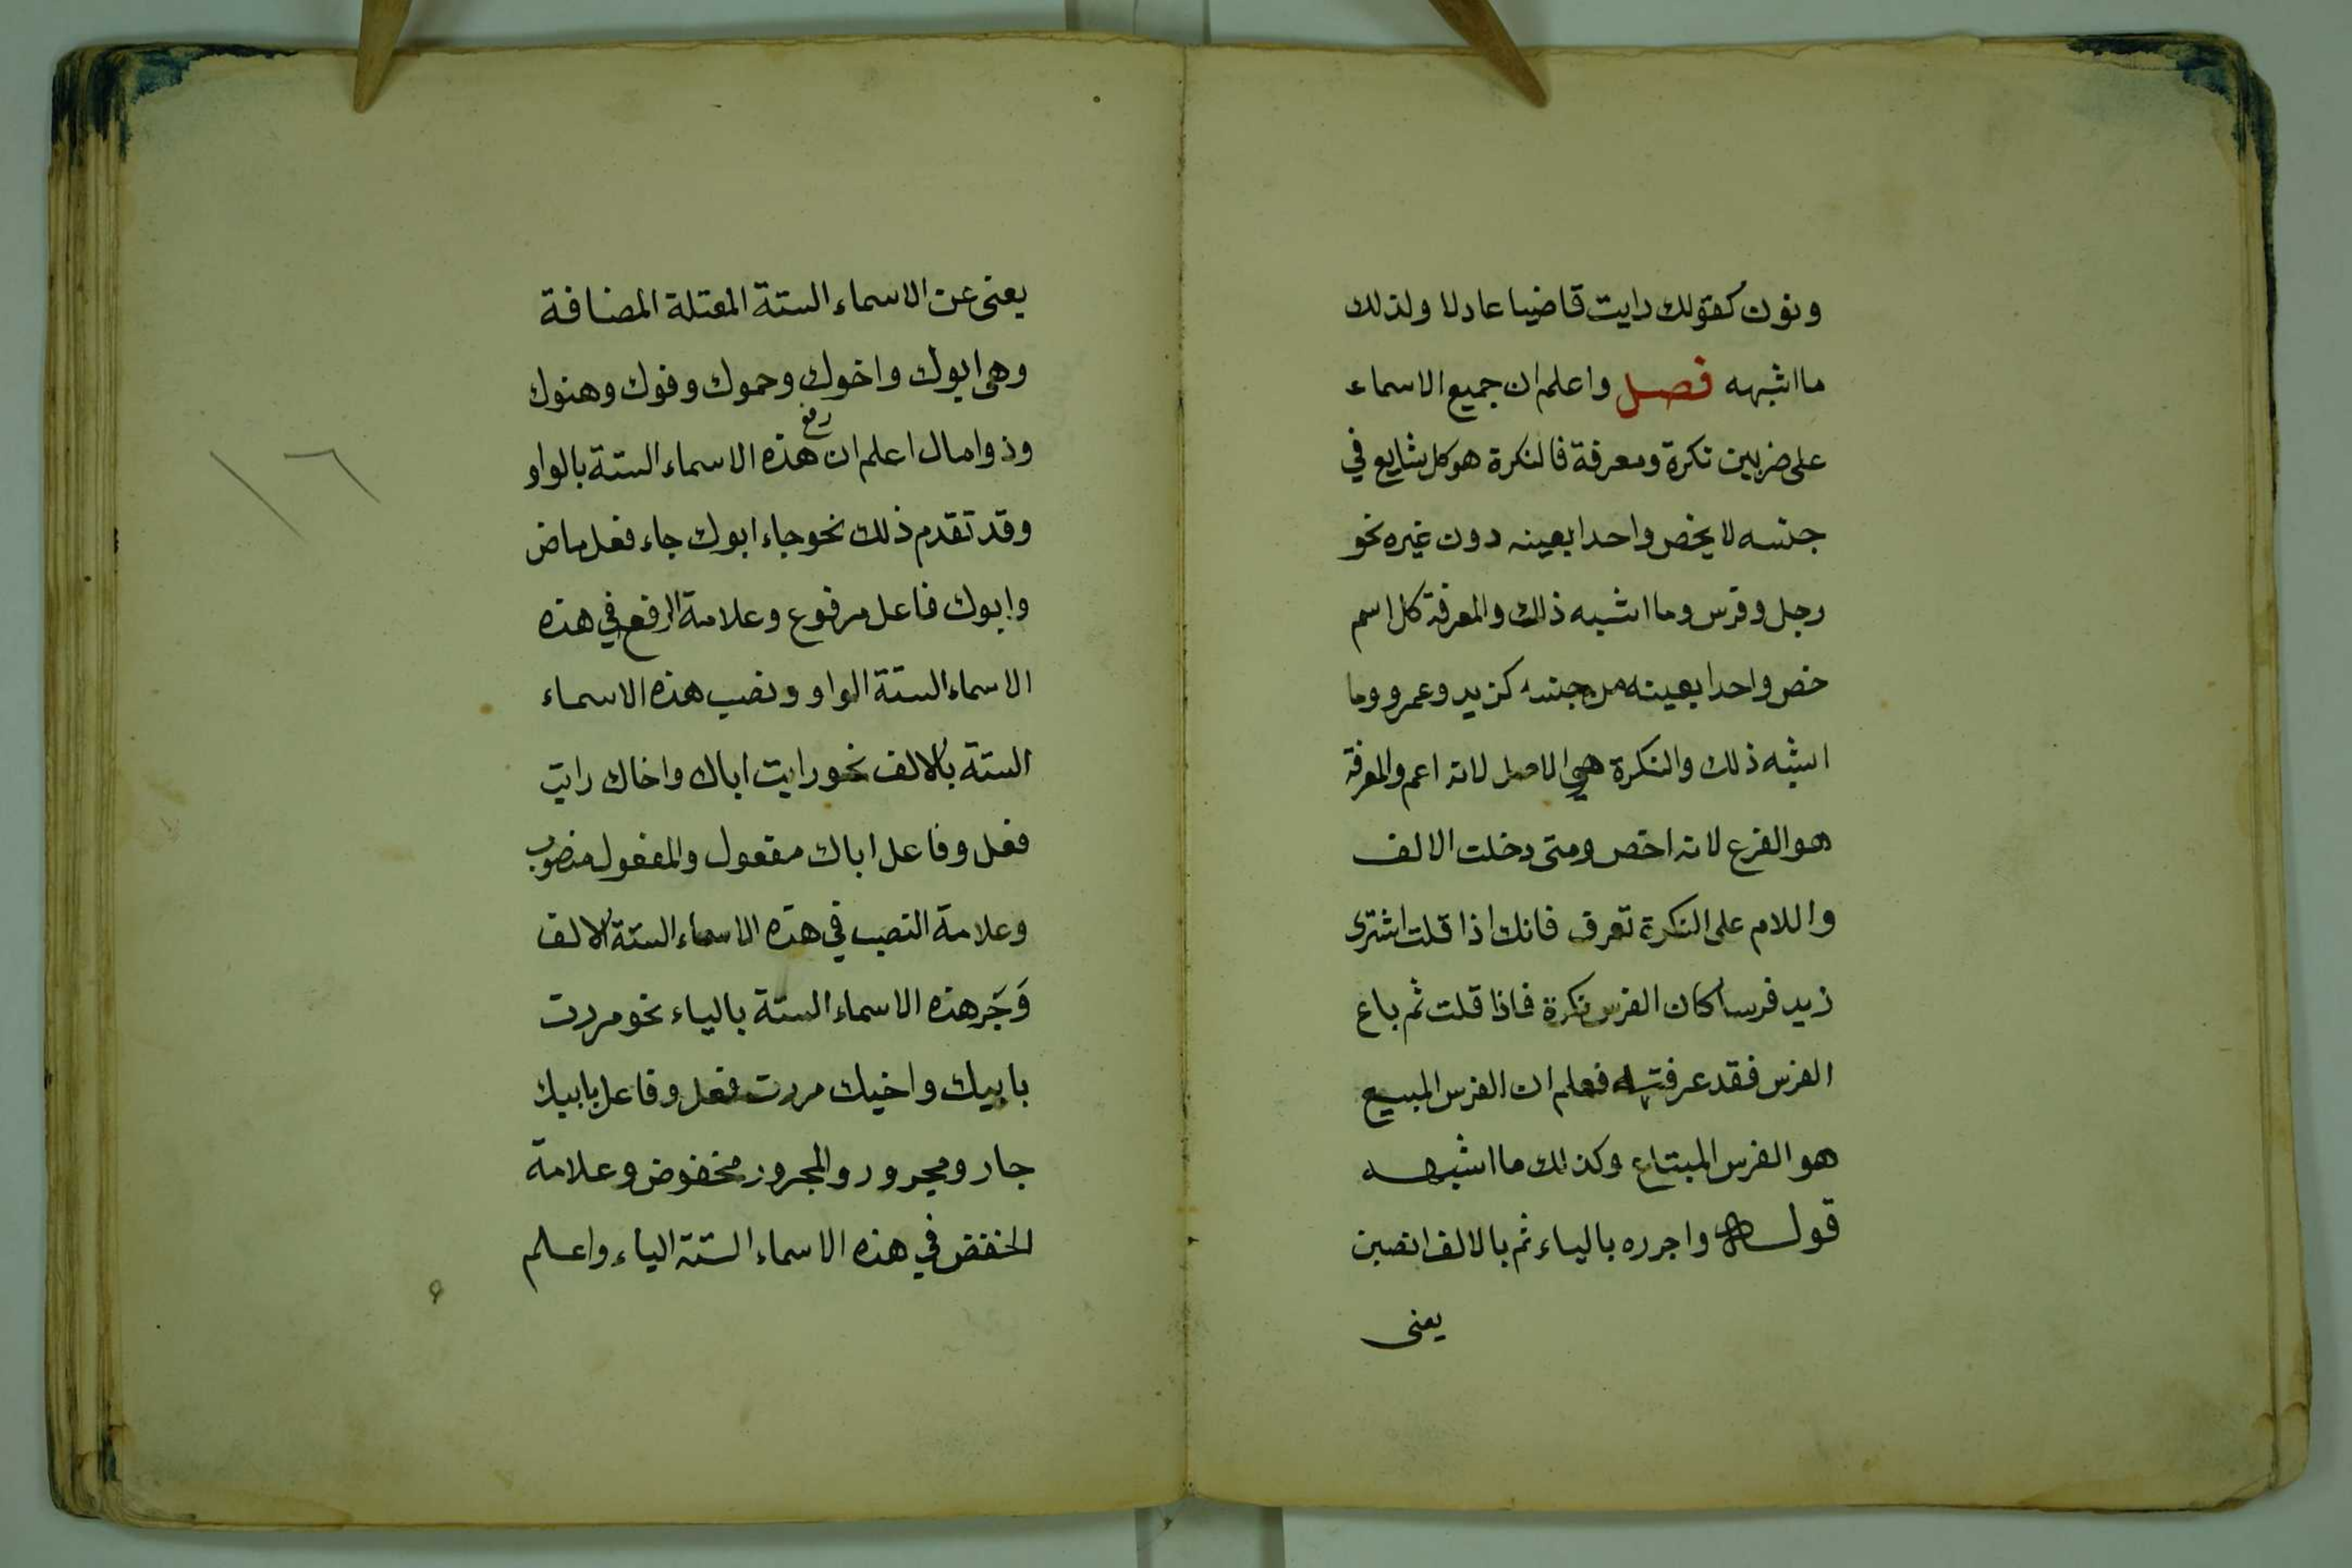 ونون كقولك رايت قاضيا عادلا ولذلك
ما اشبهه فصل واعلم ان جميع الاسماء
على ضربين نكرة ومعرفة فالنكرة هو كل شايع في
جنسه لا يخص واحدا بعينه دون غيره نحو
رجل وفرس وما اشبه ذلك والمعرفة كل اسم
خص واحدا بعينه من جنسه كزيد وعمرو وما
اشبه ذلك والنكرة هي الاصل لانه اعم والمعرفة
هو الفرع لانه اخص ومتى دخلت الالف
واللام على النكرة تعرف فانك اذا قلت اشترى
زيد فرسا كان الفرس نكرة فاذا قلت ثم باع
الفرس فقد عرفته فعلم ان الفرس المبيع
هو الفرس المبتاع وكذلك ما اشبهه
قوله واجرره بالياء ثم بالالف انصبن
يعنى
يعنى عن الاسماء الستة المعتلة المضافة
وهى ابوك واخوك وحموك وفوك وهنوك
وذو مال اعلم ان رفع هذه الاسماء الستة بالواو
وقد تقدم ذلك نحو جاء ابوك جاء فعل ماض
وابوك فاعل مرفوع وعلامة الرفع في هذه
الاسماء الستة الواو ونصب هذه الاسماء
الستة بالالف نحو رايت اباك واخاك رايت
فعل وفاعل اباك مفعول والمفعول منصوب
وعلامة النصب في هذه الاسماء الستة الالف
وَجَر هذه الاسماء الستة بالياء نحو مررت
بابيك واخيك مررت فعل وفاعل بابيك
جار ومجرور والمجرور مخفوض وعلامة
الخفض في هذه الاسماء الستة الياء واعلم
١٦